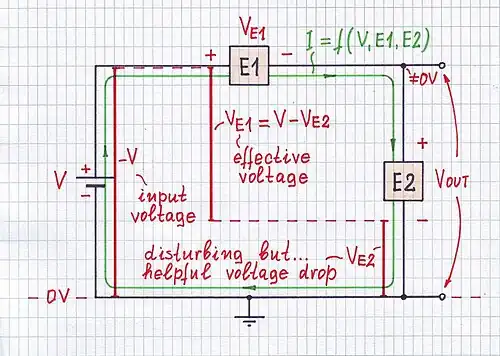 VE1
I = f(V, E1, E2)
+ E1 -
≠0V
VE1 = V - VE2
effective
voltage
+
E2
-
VOUT
+
V
-
V
input
voltage
disturbing but...
helpful voltage drop
VE2
0V